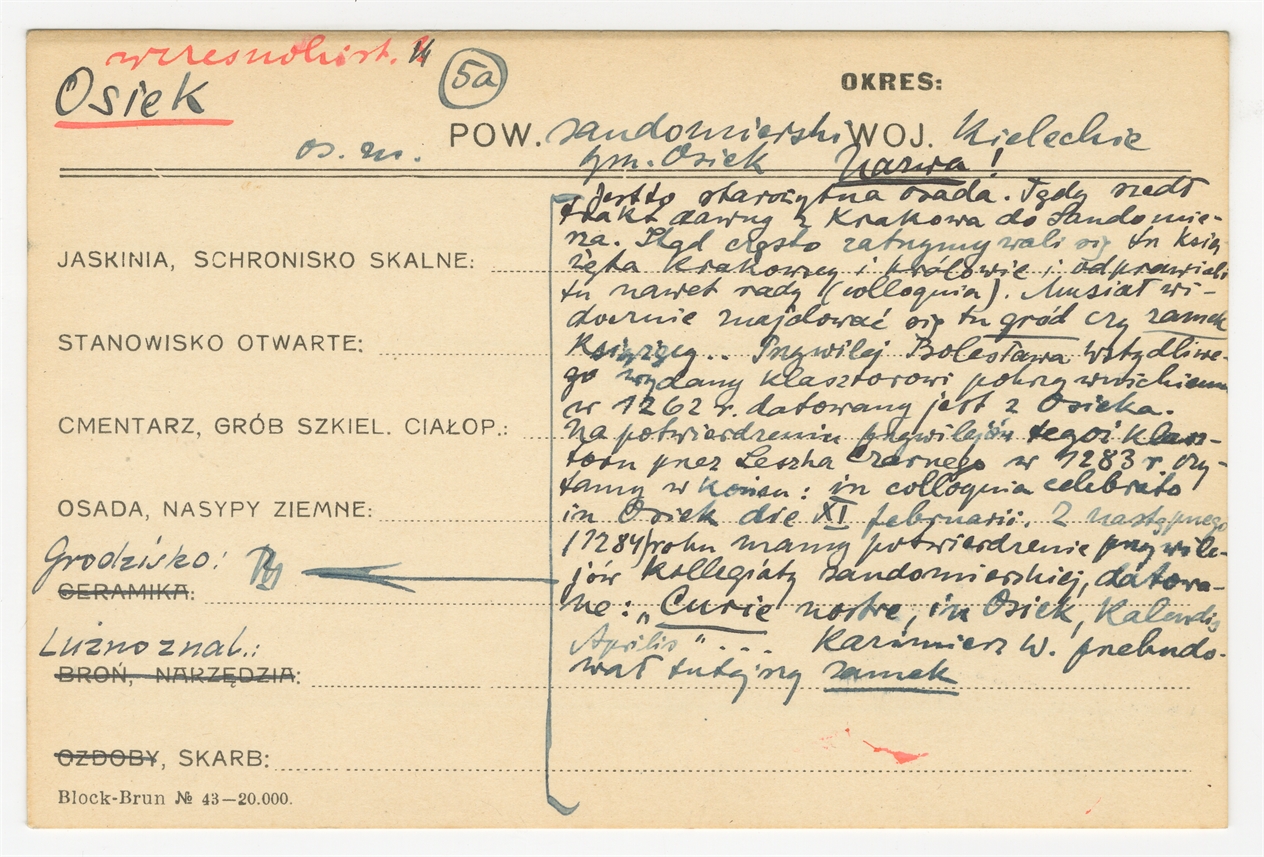 wczesnohist. 1/4
Osiek
5a
OKRES:
os. m.
POW. sandomierski WOJ. Kieleckie
gm. Osiek Nazwa!
Jest to starożytna osada. Tędy szedł
trakt dawny z Krakowa do Sandomie-
rza. Stąd często zatrzymywali się tu ksią-
żęta krakowscy i królowie i odprawiali
tu nawet rady (colloquia). Musiał wi-
docznie znajdować się tu gród czy zamek
książęcy.. Przywilej Bolesława Wstydliwe-
go wydany klasztorowi pokrzywnickiemu
w 1262 r. datowany jest z Osieka.
Na potwierdzeniu przywilejów tegoż klasz-
toru przez Leszka Czarnego w 1283 r. czy-
tamy w końcu: in colloquia celebrato
in Osiek die XI februarii. Z następnego
(1284) roku mamy potwierdzenie przywile-
jów kollegiaty sandomierskiej, datowa-
ne: „Curie nostre, in Osiek, Kalendis
Aprilis" ... Kazimierz W. przebudo-
wał tutejszy zamek
JASKINIA, SCHRONISKO SKALNE:
STANOWISKO OTWARTE:
CMENTARZ, GRÓB SZKIEL. CIAŁOP.:
OSADA, NASYPY ZIEMNE:
Grodzisko:
CERAMIKA:
Luźno znal.:
BROŃ, NARZĘDZIA:
OZDOBY, SKARB:
Block-Brun № 43—20.000.